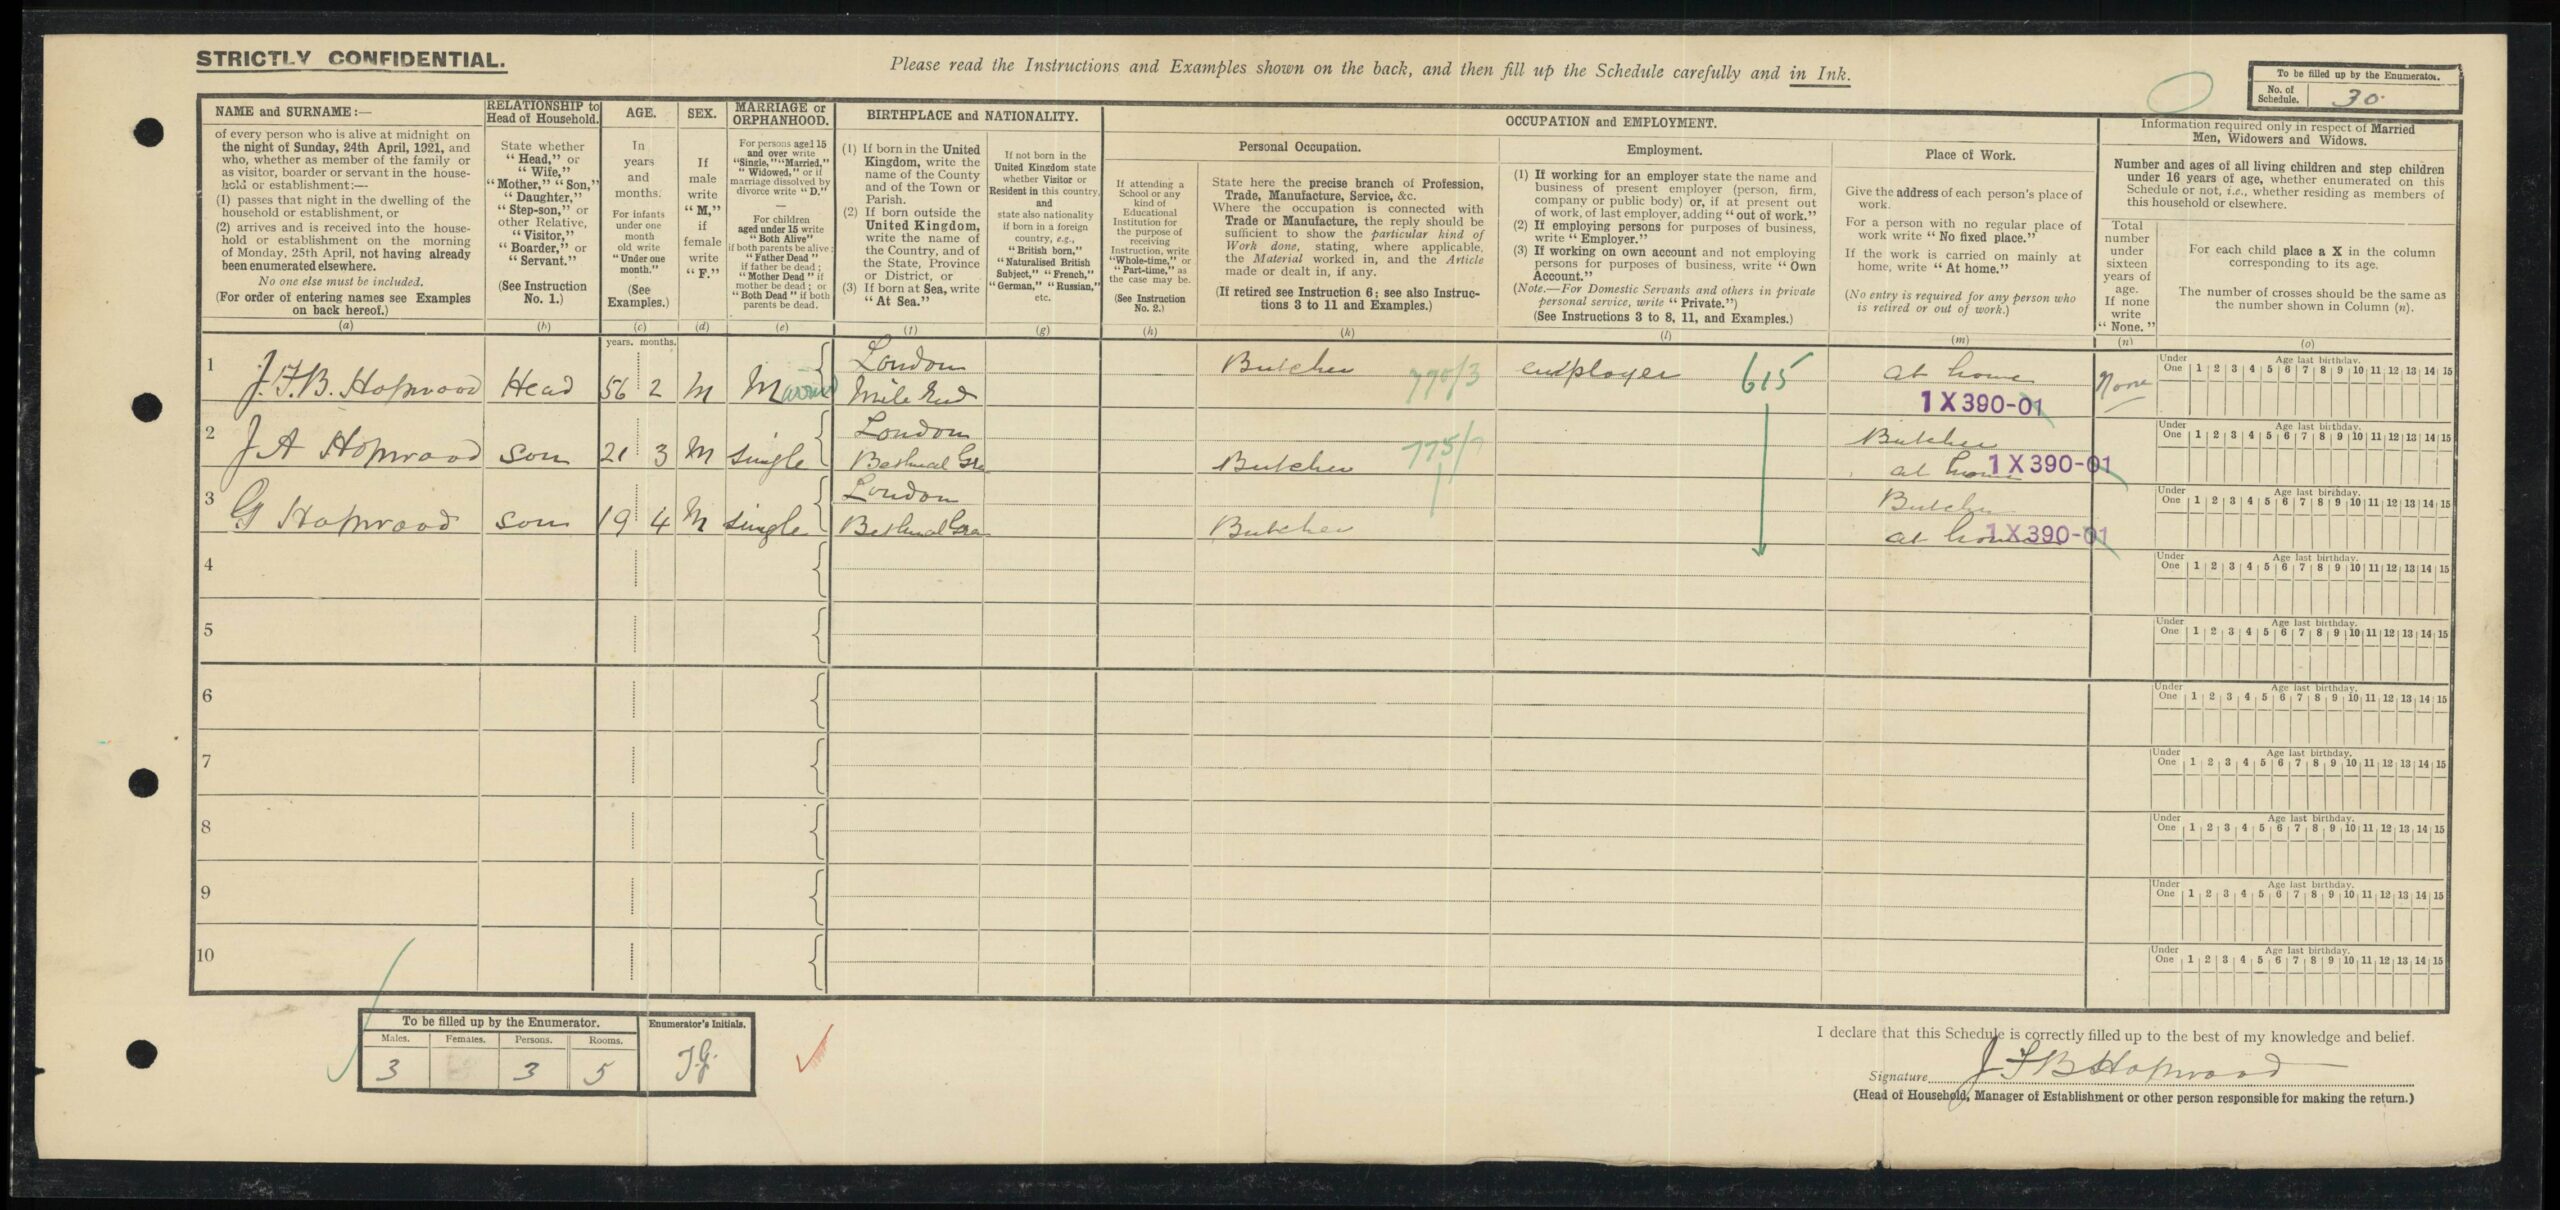 STRICTLY CONFIDENTIAL.
Please read the Instructions and Examples shown on the back, and then fill up the Schedule carefully and in Ink.
To be filled up by the Enumerator.
No. of Schedule. 30
NAME and SURNAME:—
of every person who is alive at midnight on
the night of Sunday, 24th April, 1921, and
who, whether as member of the family or
as visitor, boarder or servant in the house-
hold or establishment:—
(1) passes that night in the dwelling of the
household or establishment, or
(2) arrives and is received into the house-
hold or establishment on the morning
of Monday, 25th April, not having already
been enumerated elsewhere.
No one else must be included.
(For order of entering names see Examples
on back hereof.)
(a)
RELATIONSHIP to
Head of Household.
State whether
"Head," or
"Wife,"
"Mother," "Son,"
"Daughter,"
"Step-son," or
other Relative,
"Visitor,"
"Boarder," or
"Servant."
(See Instruction
No. 1.)
(b)
AGE.
In
years
and
months.
For infants
under one
month
old write
"Under one
month."
(See
Examples.)
(c)
SEX.
If
male
write
"M,"
if
female
write
"F."
(d)
MARRIAGE or
ORPHANHOOD.
For persons aged 15
and over write
"Single," "Married,"
"Widowed," or if
marriage dissolved by
divorce write "D."
—
For children
aged under 15 write
"Both Alive"
if both parents be alive;
"Father Dead"
if father be dead;
"Mother Dead" if
mother be dead; or
"Both Dead" if both
parents be dead.
(e)
BIRTHPLACE and NATIONALITY.
(1) If born in the United
Kingdom, write the
name of the County
and of the Town or
Parish.
(2) If born outside the
United Kingdom,
write the name of
the Country, and of
the State, Province
or District, or
(3) If born at Sea, write
"At Sea."
(f)
If not born in the
United Kingdom state
whether Visitor or
Resident in this country,
and
state also nationality
if born in a foreign
country, e.g.,
"British born,"
"Naturalised British
Subject," "French,"
"German," "Russian,"
etc.
(g)
OCCUPATION and EMPLOYMENT.
Personal Occupation.
If attending a
School or any
kind of
Educational
Institution for
the purpose of
receiving
Instruction, write
"Whole-time," or
"Part-time," as
the case may be.
(See Instruction
No. 2.)
(h)
State here the precise branch of Profession,
Trade, Manufacture, Service, &c.
Where the occupation is connected with
Trade or Manufacture, the reply should be
sufficient to show the particular kind of
Work done, stating, where applicable,
the Material worked in, and the Article
made or dealt in, if any.
(If retired see Instruction 6; see also Instruc-
tions 3 to 11 and Examples.)
(k)
Employment.
(1) If working for an employer state the name and
business of present employer (person, firm,
company or public body) or, if at present out
of work, of last employer, adding "out of work."
(2) If employing persons for purposes of business,
write "Employer."
(3) If working on own account and not employing
persons for purposes of business, write "Own
Account."
(Note.—For Domestic Servants and others in private
personal service, write "Private.")
(See Instructions 3 to 8, 11, and Examples.)
(l)
Place of Work.
Give the address of each person's place of
work.
For a person with no regular place of
work write "No fixed place."
If the work is carried on mainly at
home, write "At home."
(No entry is required for any person who
is retired or out of work.)
(m)
Information required only in respect of Married
Men, Widowers and Widows.
Number and ages of all living children and step children
under 16 years of age, whether enumerated on this
Schedule or not, i.e., whether residing as members of
this household or elsewhere.
Total
number
under
sixteen
years of
age.
If none
write
"None."
(n)
For each child place a X in the column
corresponding to its age.
The number of crosses should be the same as
the number shown in Column (n).
(o)
years. months.
1 J.F.B. Hopwood Head 56 2 M M London Mile End Butcher 770/3 employer 615 at home 1 X 390-01 None
Under One Age last birthday. 1 2 3 4 5 6 7 8 9 10 11 12 13 14 15
2 J A Hopwood son 21 3 M single London Bethnal Gre Butcher 775/ Butcher at home 1 X 390-01
Under One Age last birthday. 1 2 3 4 5 6 7 8 9 10 11 12 13 14 15
3 G Hopwood son 19 4 M single London Bethnal Gre Butcher Butcher at home 1 X 390-01
Under One Age last birthday. 1 2 3 4 5 6 7 8 9 10 11 12 13 14 15
4
Under One Age last birthday. 1 2 3 4 5 6 7 8 9 10 11 12 13 14 15
5
Under One Age last birthday. 1 2 3 4 5 6 7 8 9 10 11 12 13 14 15
6
Under One Age last birthday. 1 2 3 4 5 6 7 8 9 10 11 12 13 14 15
7
Under One Age last birthday. 1 2 3 4 5 6 7 8 9 10 11 12 13 14 15
8
Under One Age last birthday. 1 2 3 4 5 6 7 8 9 10 11 12 13 14 15
9
Under One Age last birthday. 1 2 3 4 5 6 7 8 9 10 11 12 13 14 15
10
Under One Age last birthday. 1 2 3 4 5 6 7 8 9 10 11 12 13 14 15
To be filled up by the Enumerator.
Enumerator's Initials.
Males. Females. Persons. Rooms.
3 3 5
I declare that this Schedule is correctly filled up to the best of my knowledge and belief.
Signature J F B Hopwood
(Head of Household, Manager of Establishment or other person responsible for making the return.)